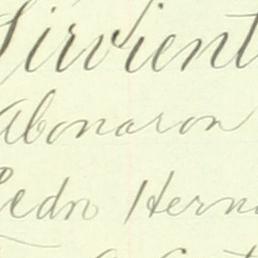 Sirvient
Abonaron
Pedro Hern